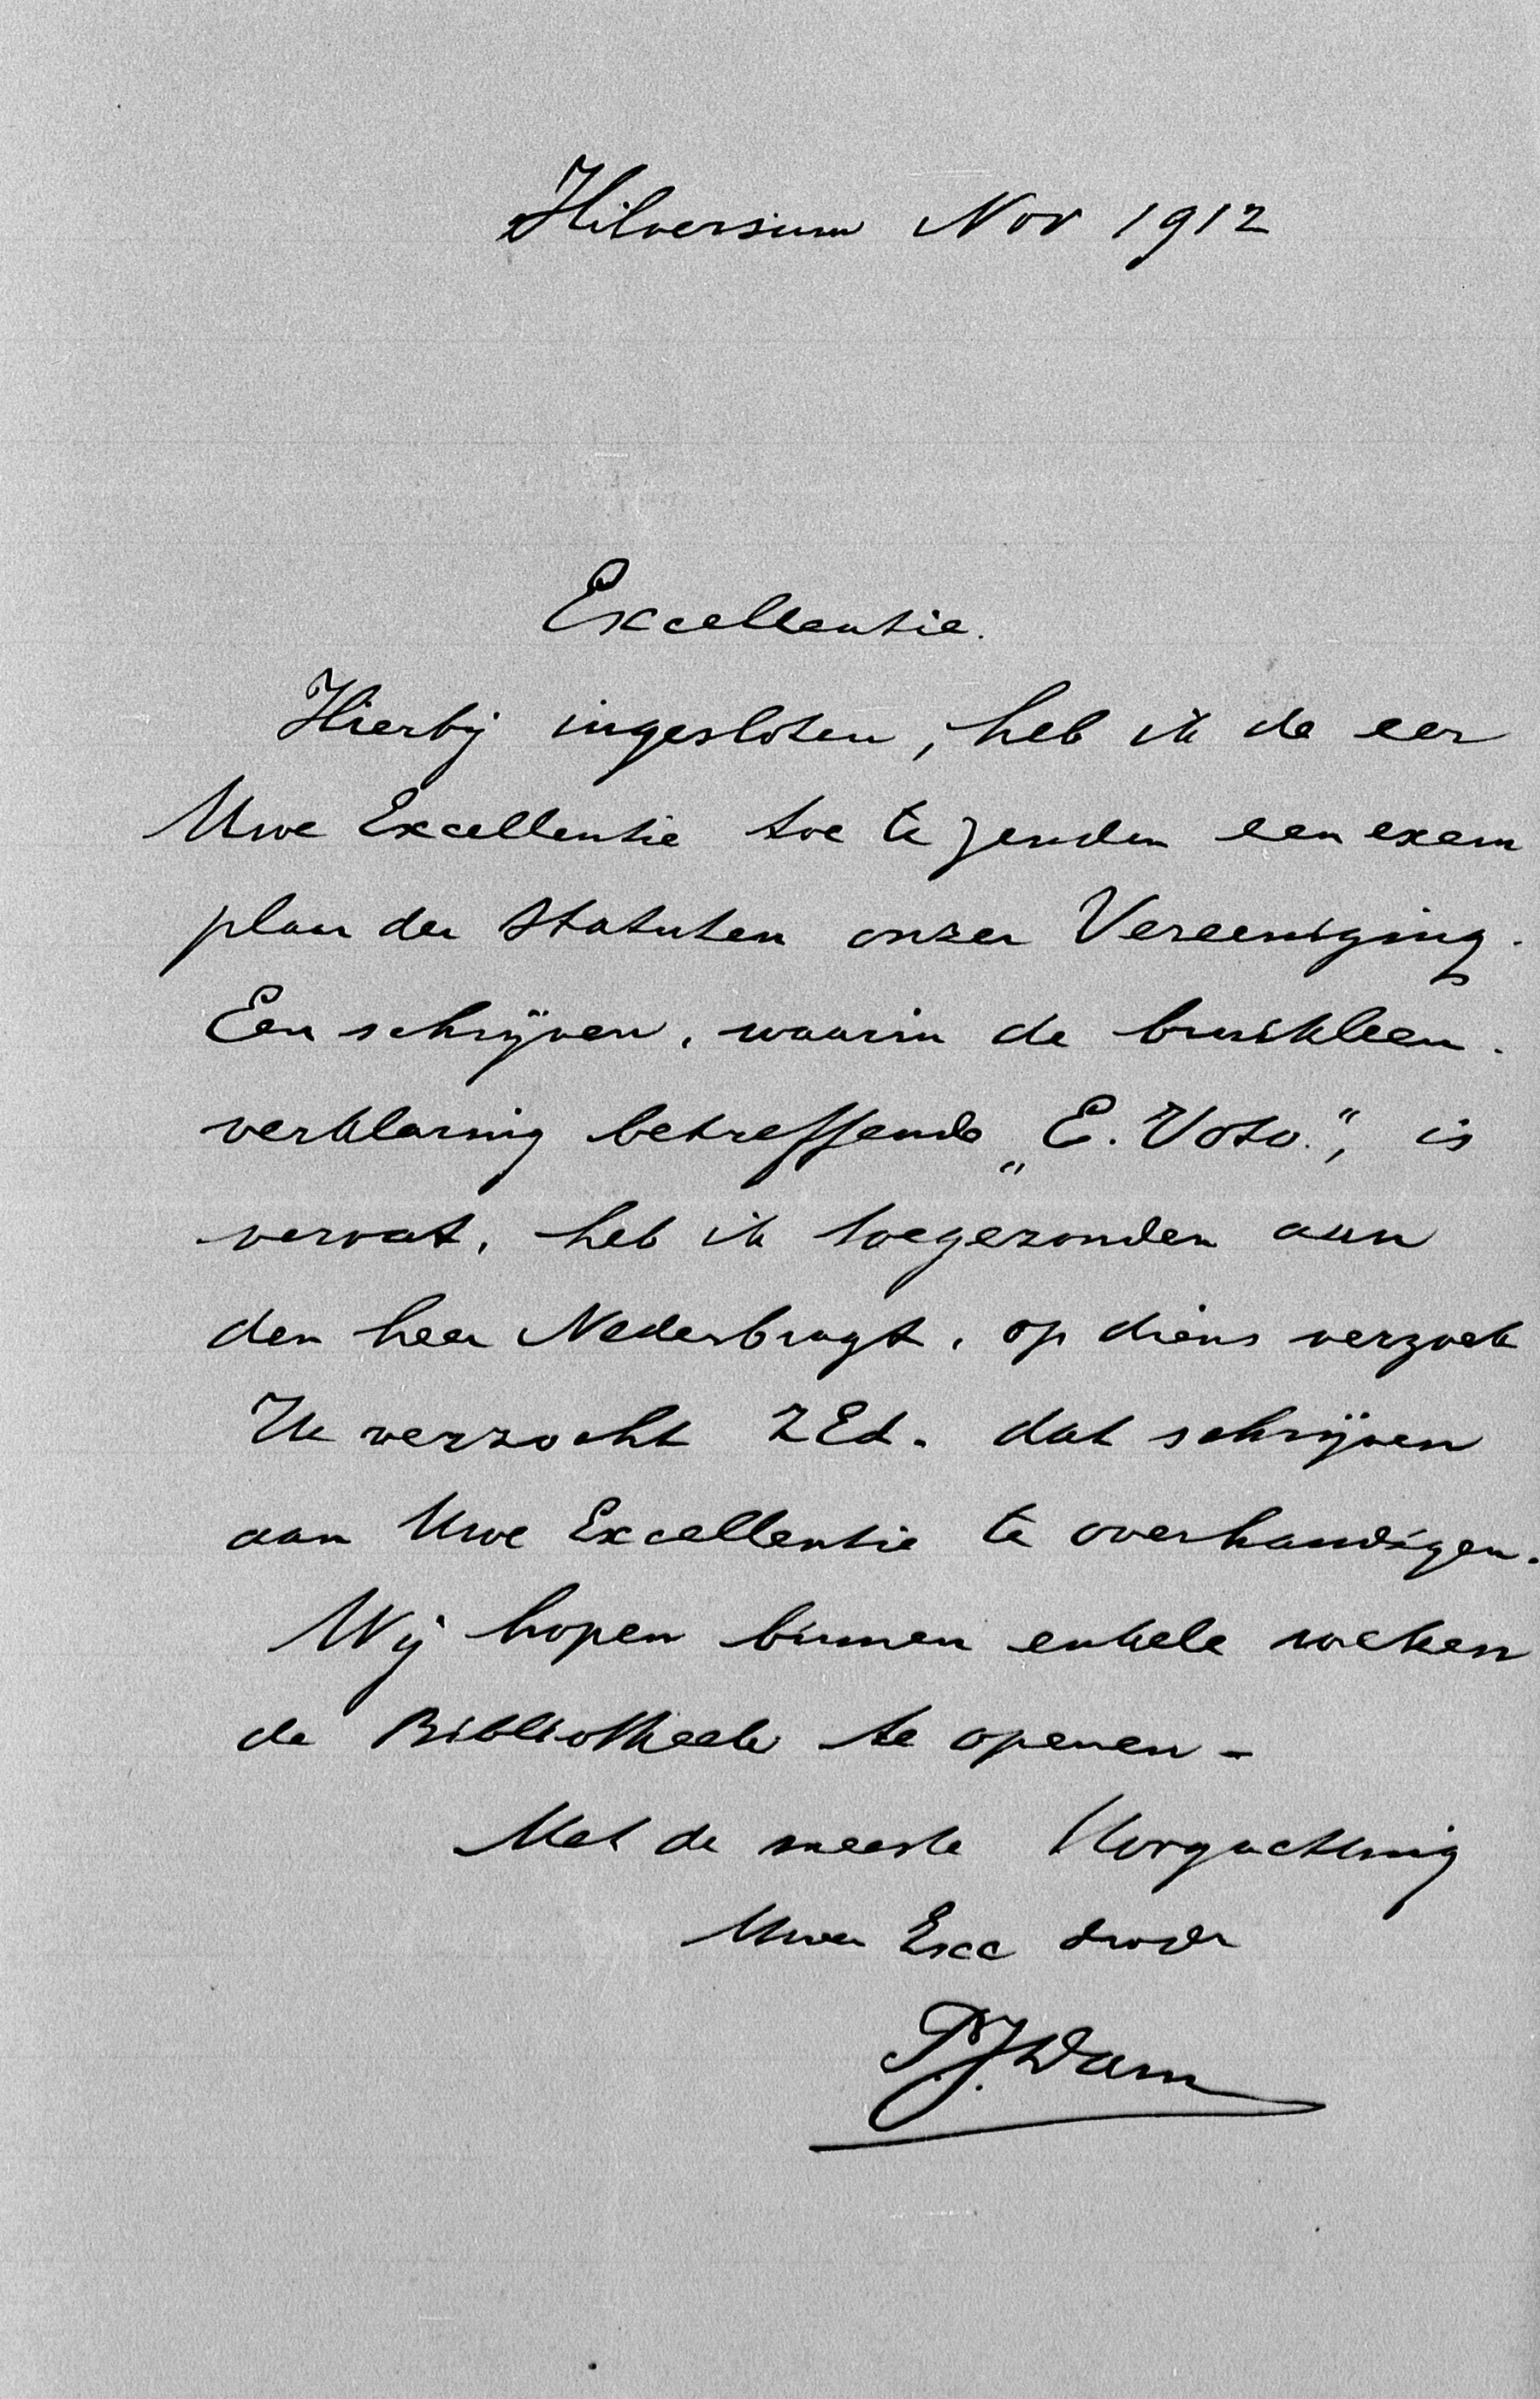 Hilversum Nov 1912
Excellentie.
Hierbij ingesloten, heb ik de eer
Uwe Excellentie toe te zenden een exem
plaar der Statuten onzer Vereeniging.
Een schrijven, waarin de bruikleen-
verklaring betreffende „E. Voto.", is
vervat, heb ik toegezonden aan
den heer Nederbragt, op diens verzoek
Ik verzocht ZEd. dat schrijven
aan Uwe Excellentie te overhandigen.
Wij hopen binnen enkele weken
de Bibliotheek te openen -
Met de meeste Hoogachting
Uwer Exc dwdr
P.J. Dam